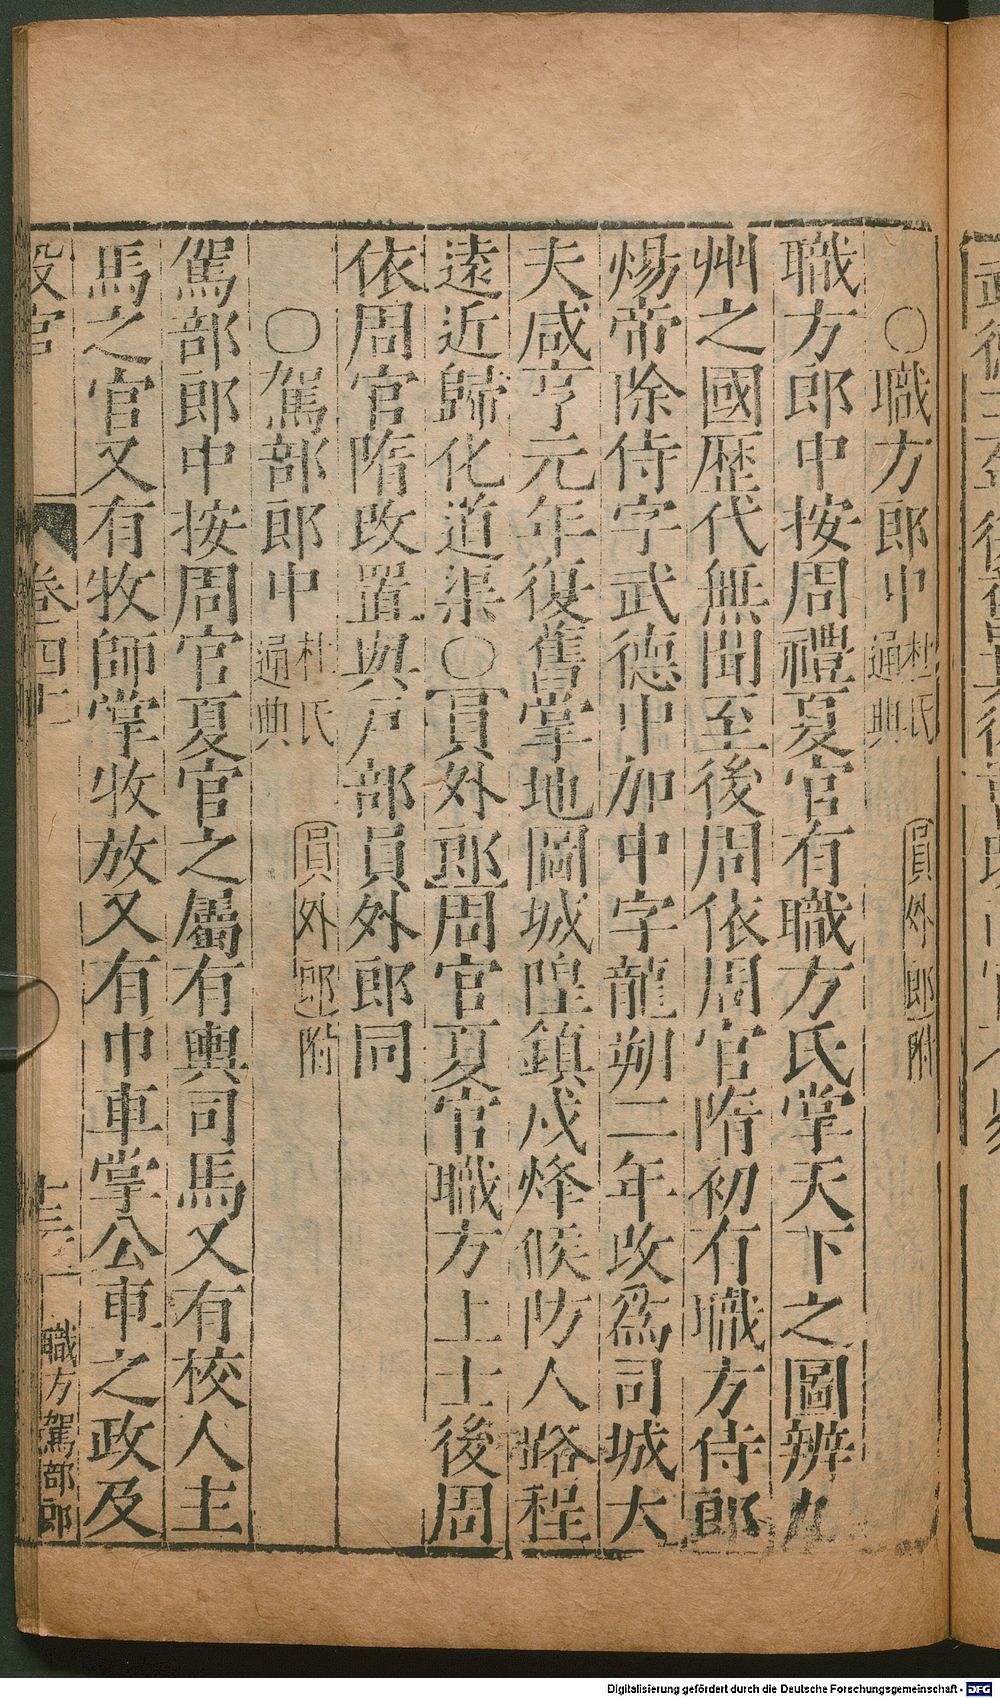 ○職方郎中 杜氏通典 員外郎附
職方郎中按周禮夏官有職方氏掌天下之圖辨九
州之國歷代無聞至後周依周官隋初有職方侍郎
煬帝除侍字武德中加中字龍朔二年改爲司城大
夫咸亨元年復舊掌地圖城隍鎮戍烽候防人路程
遠近歸化道渠○員外郎周官夏官職方上士後周
依周官隋改置與戶部員外郎同
○駕部郎中 杜氏通典 員外郎附
駕部郎中按周官夏官之屬有輿司馬又有校人主
馬之官又有牧師掌牧放又有巾車掌公車之政及
設官 卷四十 職方駕部郎
Digitalisierung gefördert durch die Deutsche Forschungsgemeinschaft - DFG